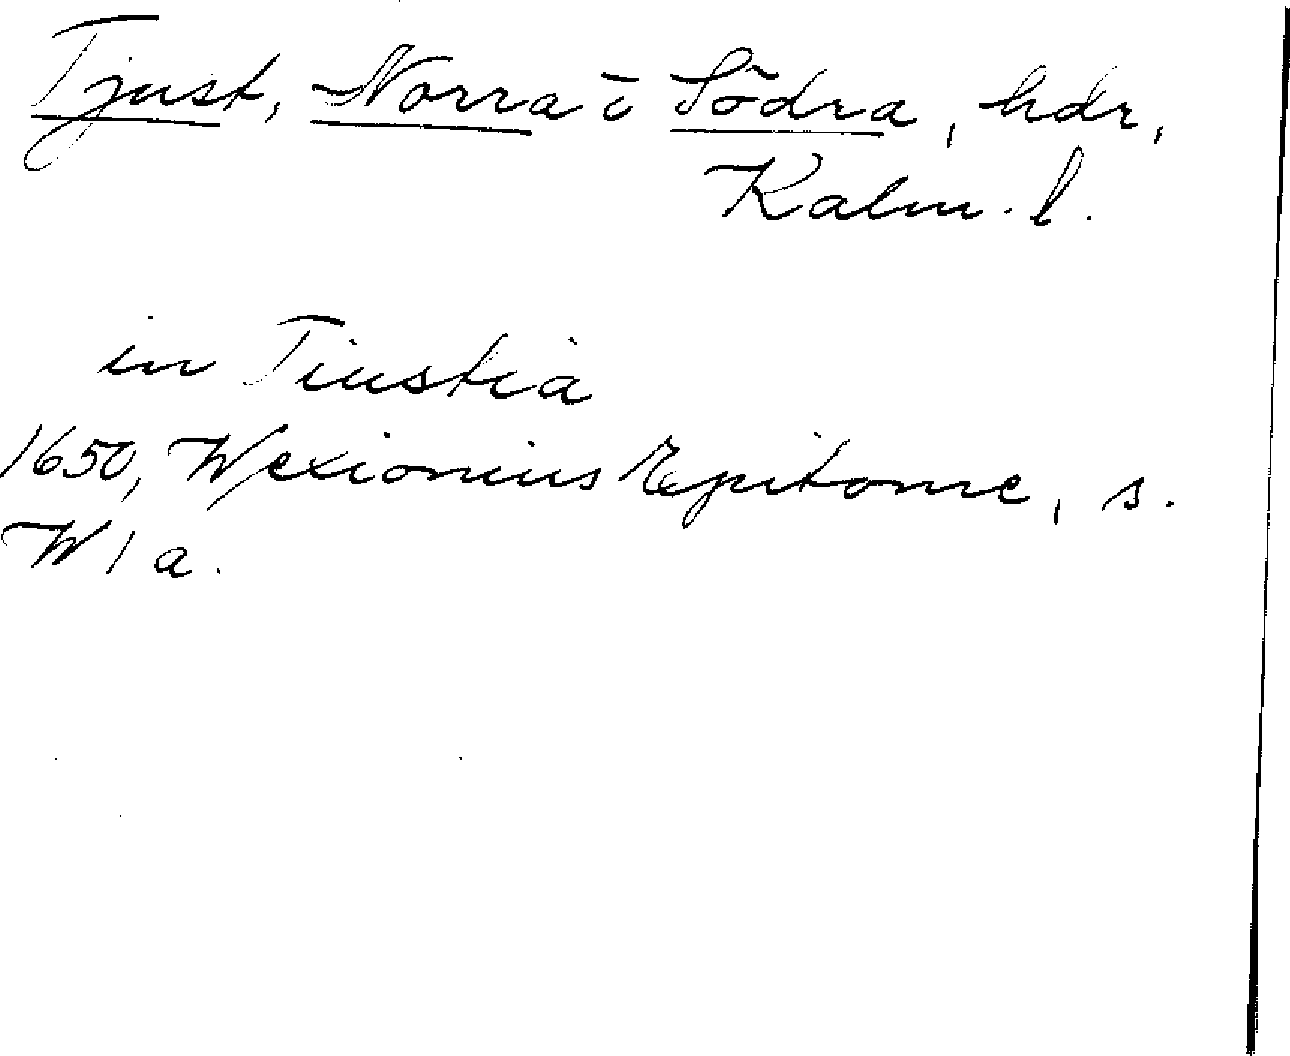 Tjust, Norra o Södra, hdr,
Kalm. l.
in Tiustia
1650, Wexionius Epitome, s.
W 1 a.